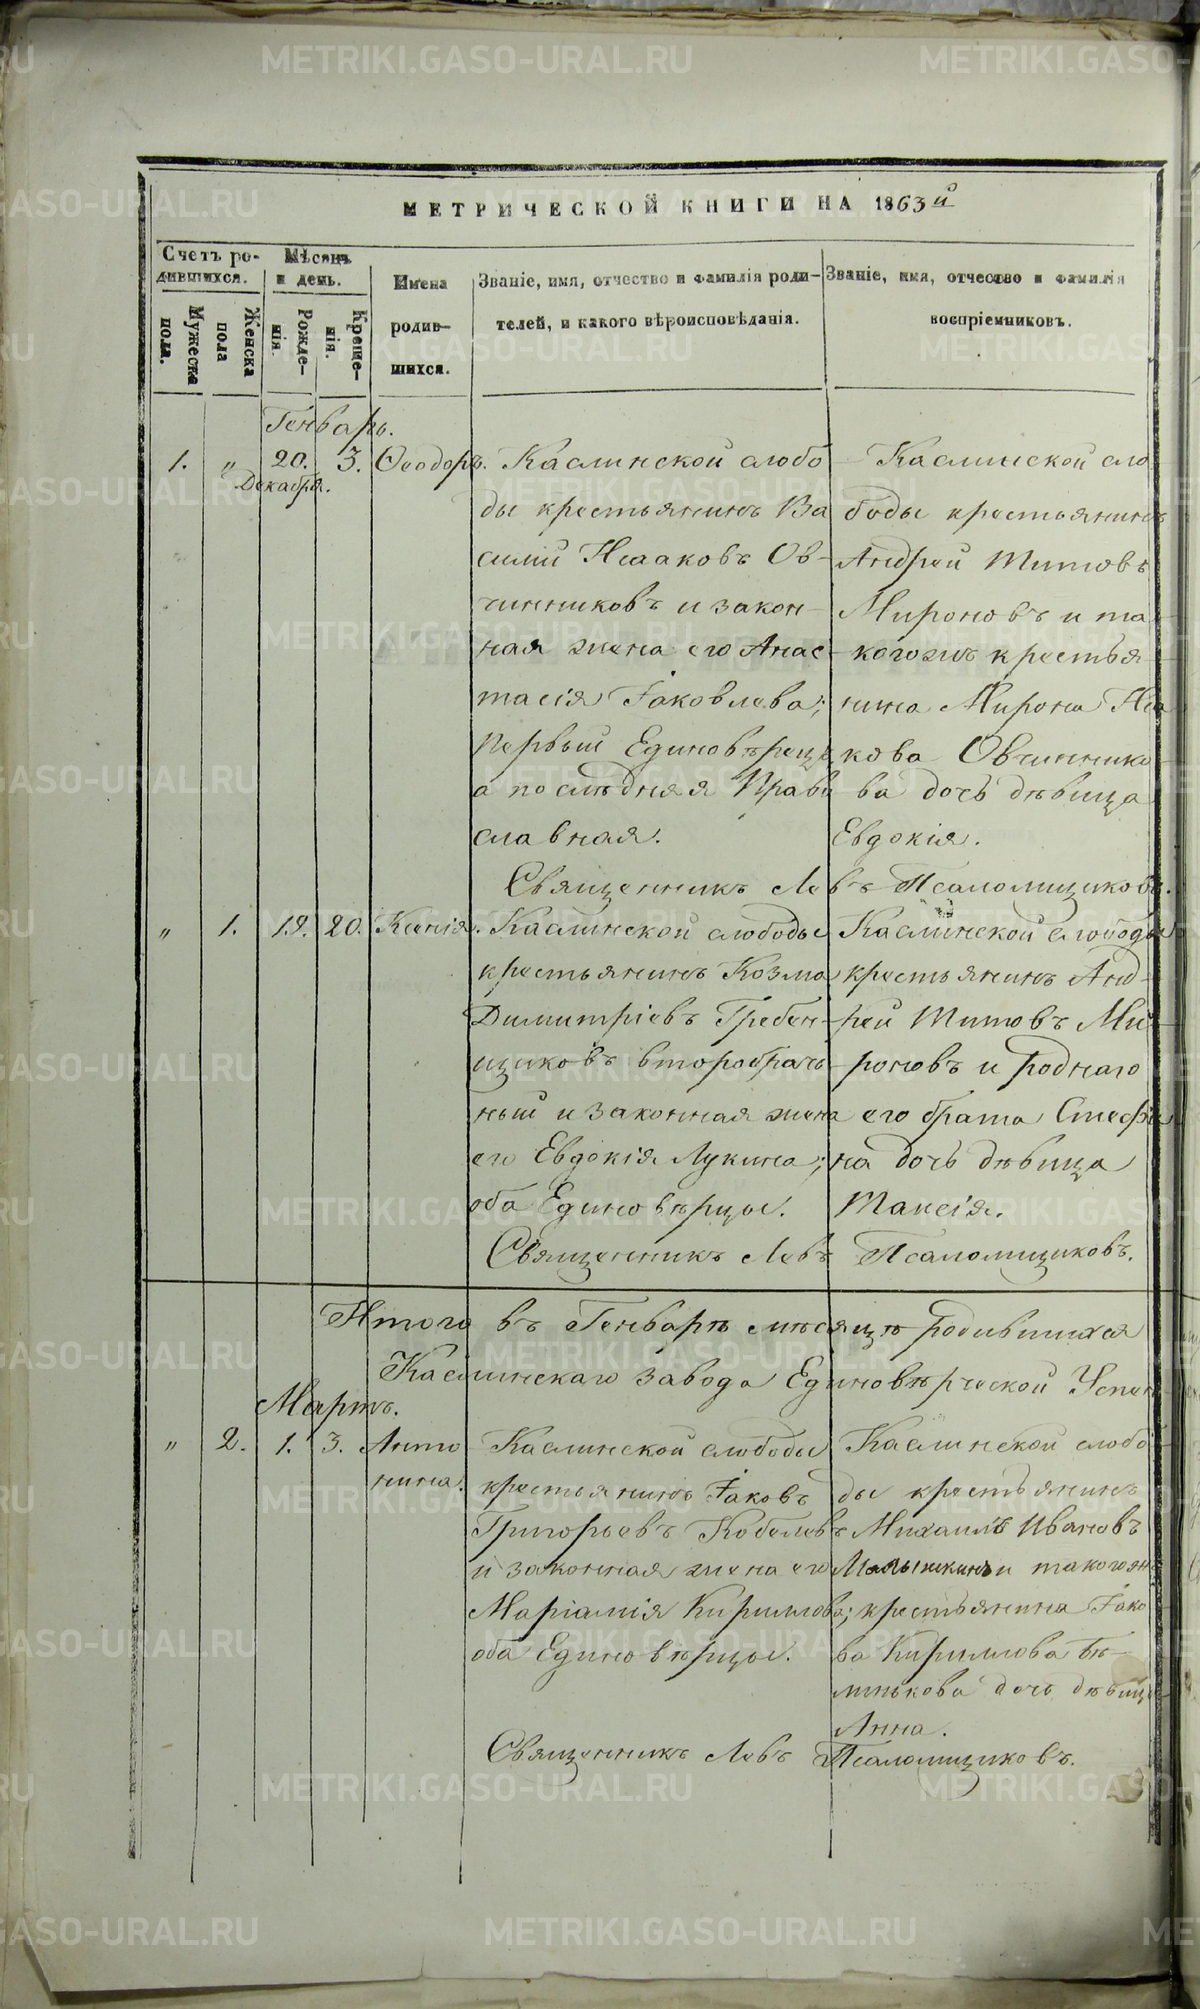 МЕТРИЧЕСКОЙ КНИГИ НА 1863й
Счетъ ро-
дившихся.
Мужеска пола.
Женска пола
Мѣсяцъ
и день.
Рожде-
нія.
Креще-
нія.
Имена
родив-
шихся.
Званіе, имя, отчество и фамилія роди-
телей, и какого вѣроисповѣданія.
Званіе, имя, отчество и фамилія
воспріемниковъ.
Генварь.
1. „ 20. Декабря. 3. Ѳеодоръ.
Каслинской слобо
ды крестьянинъ Ва
силий Исааковъ Ов-
чинниковъ и закон-
ная жена его Анас-
тасія Іаковлева;
первый Единовѣрецъ
а послѣдняя Право
славная.
Каслинской сло
боды крестьянинъ
Андрей Титовъ
Мироновъ и та-
когожъ крестья-
нина Мирона Иса
кова Овчиннико-
ва дочь дѣвица
Евдокія.
Священникъ Левъ Псаломщиковъ.
„ 1. 19. 20. Ксенія.
Каслинской слободы
крестьянинъ Козма
Димитріевъ Гребен-
щиковъ второбрач-
ный и законная жена
его Евдокія Лукина;
оба Единовѣрцы.
Каслинской слободы
крестьянинъ Анд-
рей Титовъ Ми-
роновъ и роднаго
его брата Стефа
на дочь дѣвица
Таисія.
Священникъ Левъ Псаломщиковъ.
Итого въ Генварѣ мѣсяцѣ родившихся
Каслинскаго завода Единовѣрческой Успен
Мартъ.
„ 2. 1. 3. Анто
нина.
Каслинской слободы
крестьянинъ Іаковъ
Григорьевъ Кобелевъ
и законная жена его
Маріамія Кириллова;
оба Единовѣрцы.
Каслинской слобо
ды крестьянинъ
Михаилъ Ивановъ
Малышкинъ и такогожъ
крестьянина Іако
ва Кириллова Бѣ-
линькова дочь дѣвица
Анна.
Священникъ Левъ Псаломщиковъ.
METRIKI.GASO-URAL.RU